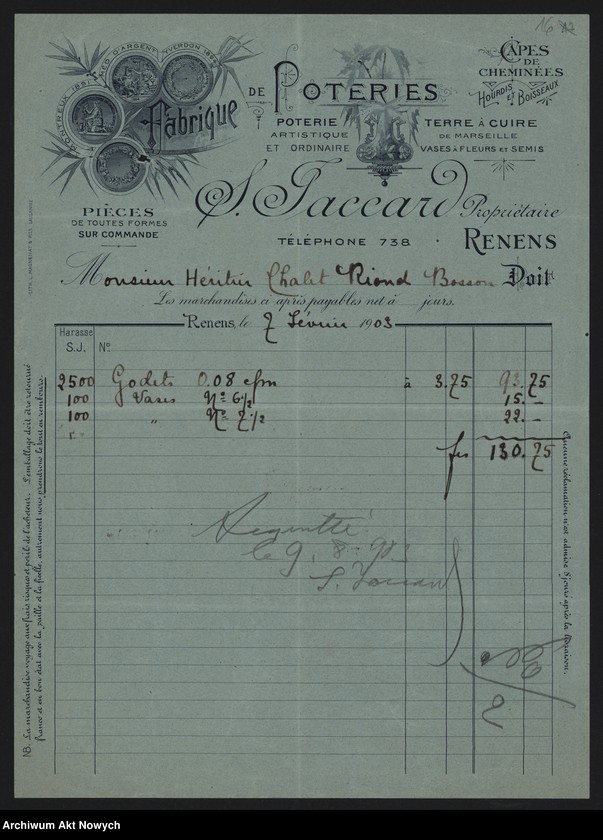 16
MONTREUX 1897
MÉD D'ARGENT
YVERDON 1894
Fabrique
DE POTERIES
CAPES
DE
CHEMINÉES
HOURDIS ET BOISSEAUX
POTERIE
ARTISTIQUE
ET ORDINAIRE
TERRE À CUIRE
DE MARSEILLE
VASES À FLEURS ET SEMIS
S. Jaccard Propriétaire
PIÈCES
DE TOUTES FORMES
SUR COMMANDE
TÉLÉPHONE 738
RENENS
Monsieur Héritier Chalet Riond Bosson Doit
Les marchandises ci après payables net à jours.
Renens, le 7 février 1903
Harasse
S.J. No.
2500 Godets 0.08 c/m à 3.75 93.75
100 Vases No 6½ 15.—
100 " No 7½ 22.—
frs 130.75
le 9. 8.
S. Jaccard
NB. La marchandise voyage aux frais, risques et péril de l'acheteur. L'emballage doit être retourné
franco et en bon état avec la paille et la ficelle, autrement nous prendrons le tout en rembours.
Aucune réclamation n'est admise 8 jours après la livraison.
Archiwum Akt Nowych